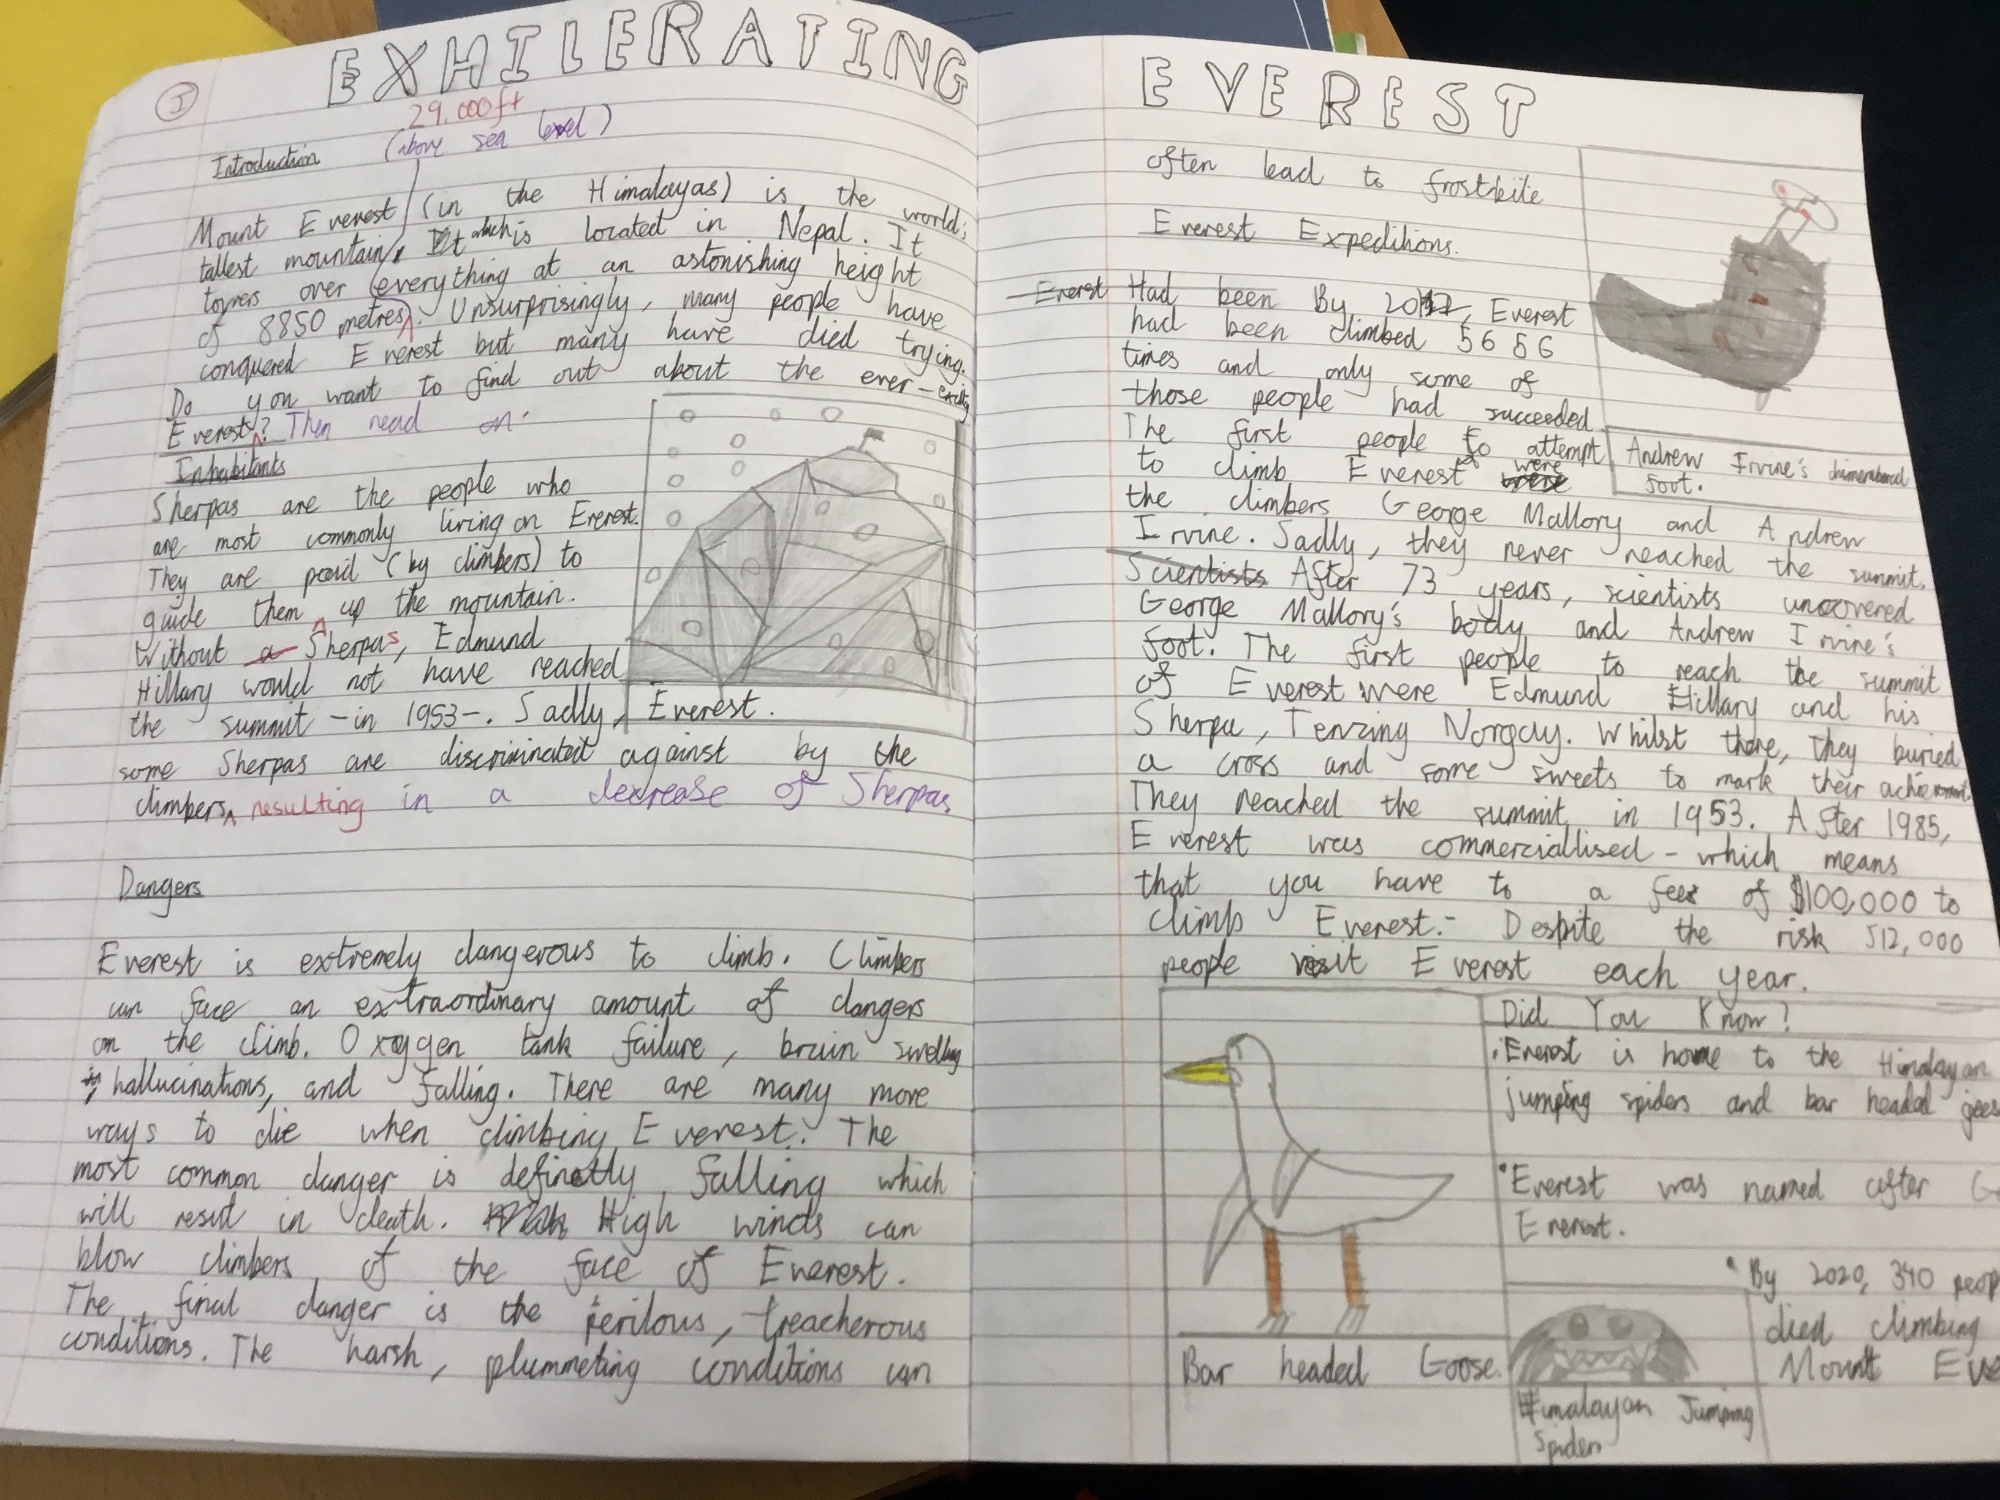 EXHILERATING
I
29,000ft
(above sea level)
Introduction
Mount Everest (in the Himalayas) is the world's
tallest mountain, which is located in Nepal. It
towers over everything at an astonishing height
of 8850 metres. Unsurprisingly, many people have
conquered Everest but many have died trying.
Do you want to find out about the ever-
Everest? Then read on.
Inhabitants
Sherpas are the people who
are most commonly living on Everest.
They are paid (by climbers) to
guide them up the mountain.
Without a Sherpas, Edmund
Hillary would not have reached
the summit -in 1953-. Sadly,
Everest.
some Sherpas are discriminated against by the
climbers, resulting in a decrease of Sherpas
Dangers
Everest is extremely dangerous to climb. Climbers
can face an extraordinary amount of dangers
on the climb. Oxygen tank failure, brain swelling
hallucinations, and falling. There are many more
ways to die when climbing Everest. The
most common danger is definetly falling which
will result in death. High winds can
blow climbers of the face of Everest.
The final danger is the perilous, treacherous
conditions. The harsh, plummeting conditions can
EVEREST
often lead to frostbite
Everest Expeditions.
Everest Had been By 2017, Everest
had been climbed 5656
times and only some of
those people had succeeded.
The first people to attempt
to climb Everest were
the climbers George Mallory and Andrew
Irvine. Sadly, they never reached the summit.
Andrew Irvine's
foot.
Scientists After 73 years, scientists uncovered
George Mallory's body and Andrew Irvine's
foot. The first people to reach the summit
of Everest were Edmund Hillary and his
Sherpa, Tenzing Norgay. Whilst there, they buried
a cross and some sweets to mark their
They reached the summit in 1953. After 1985,
Everest was commerciallised - which means
that you have to a fee of $100,000 to
climb Everest.- Despite the risk 512,000
people visit Everest each year.
Bar headed Goose.
Did You Know?
• Everest is home to the Himalayan
jumping spiders and bar headed gees
• Everest was named after G
Everest.
• By 2020, 340 peop
died climbing
Mount Eve
Himalayan Jumping
Spider